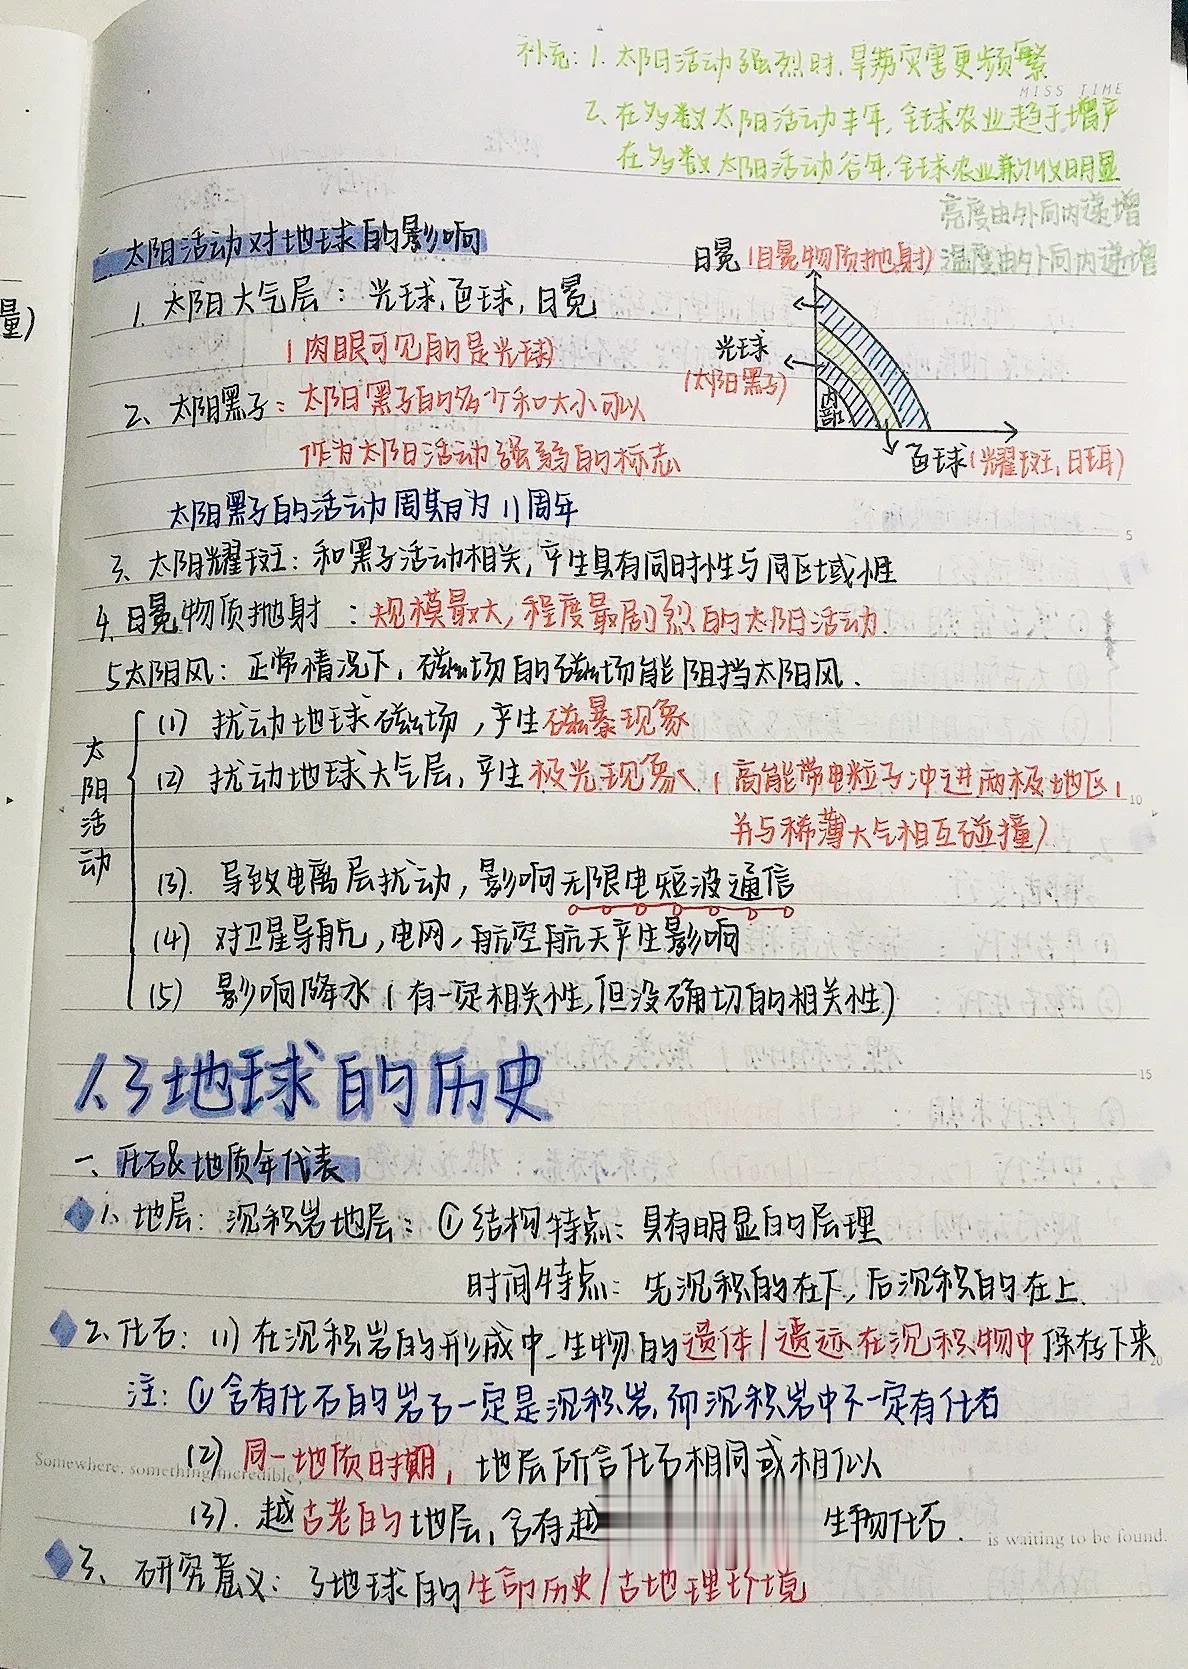 补充：1. 太阳活动强烈时，旱涝灾害更频繁
MISS TIME
2、在多数太阳活动丰年，全球农业趋于增产
在多数太阳活动谷年，全球农业歉收明显
亮度由外向内递增
温度由外向内递增
一 太阳活动对地球的影响
日冕（日冕物质抛射）
1. 太阳大气层：光球、色球，日冕
（肉眼可见的是光球）
光球
（太阳黑子）
内部
色球（耀斑，日珥）
2、太阳黑子：太阳黑子的多少和大小可以
作为太阳活动强弱的标志
太阳黑子的活动周期为11周年
3、太阳耀斑：和黑子活动相关，产生具有同时性与同区域性
4. 日冕物质抛射：规模最大，程度最剧烈的太阳活动.
5太阳风：正常情况下，磁场的磁场能阻挡太阳风.
太阳活动
(1) 扰动地球磁场，产生磁暴现象
(2) 扰动地球大气层，产生极光现象（高能带电粒子冲进两极地区，
并与稀薄大气相互碰撞）
(3). 导致电离层扰动，影响无限电短波通信
(4) 对卫星导航，电网，航空航天产生影响
(5) 影响降水（有一定相关性，但没确切的相关性）
1.3地球的历史
一、化石&地质年代表
1. 地层：沉积岩地层：① 结构特点：具有明显的层理
时间特点：先沉积的在下，后沉积的在上.
2. 化石：(1) 在沉积岩的形成中，生物的遗体/遗迹在沉积物中保存下来
注：① 含有化石的岩石一定是沉积岩，而沉积岩中不一定有化石
(2) 同一地质时期，地层所含化石相同或相似
Somewhere, something incredible,
(3). 越古老的地层，含有越 生物化石.
is waiting to be found.
3、研究意义：了地球的生命历史/古地理环境
5
10
15
20